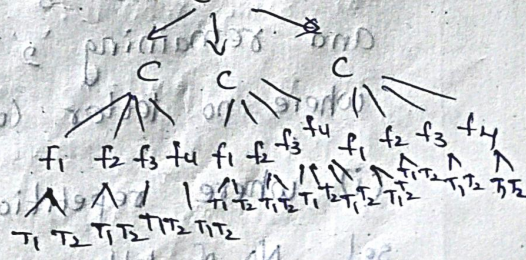 C C C
f1 f2 f3 f4 f1 f2 f3 f4 f1 f2 f3 f4
T1 T2 T1 T2 T1 T2 T1 T2 T1 T2 T1 T2 T1 T2 T1 T2 T1 T2 T1 T2 T1 T2 T1 T2